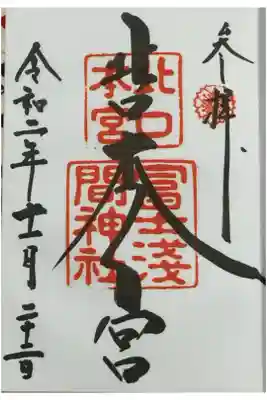 参拝
北口本宮
北口
本宮
冨士淺
間神社
令和二年十一月二十三日